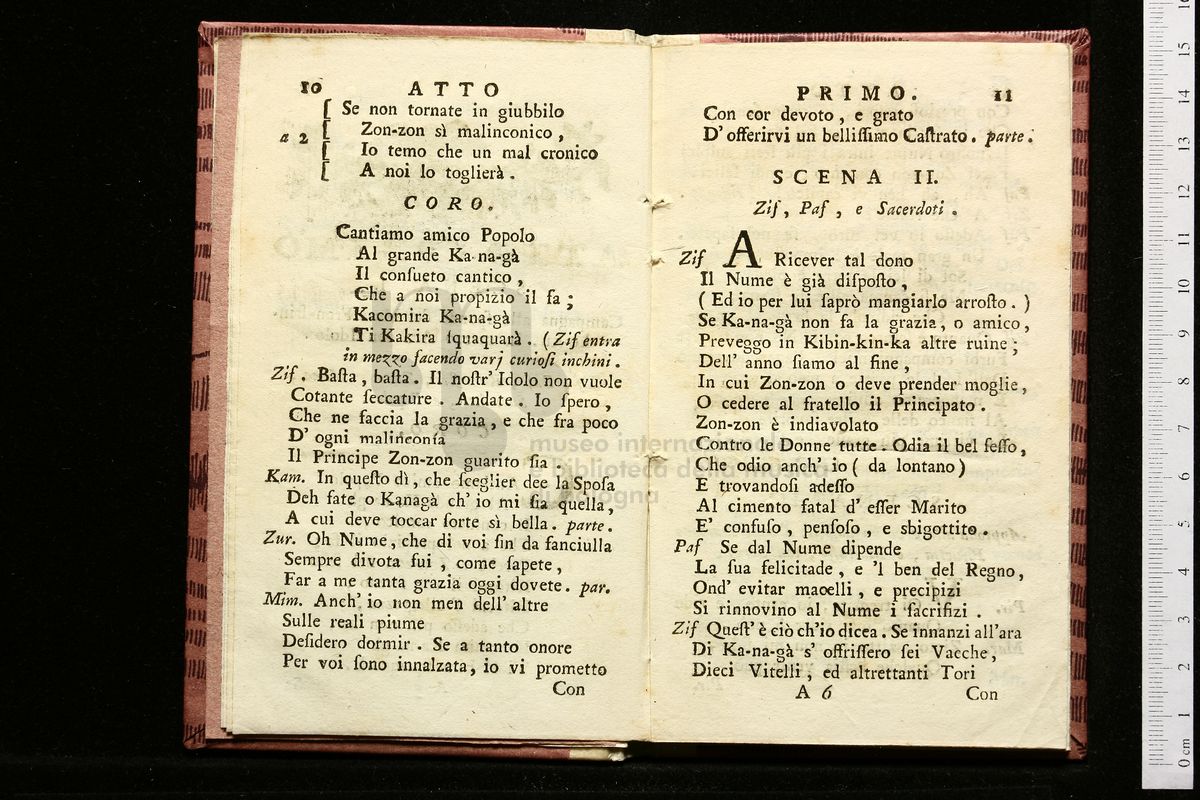 10 ATTO
Se non tornate in giubbilo
a 2 Zon-zon sì malinconico ,
Io temo che un mal cronico
A noi lo toglierà .
CORO.
Cantiamo amico Popolo
Al grande Ka-na-gà
Il conſueto cantico ,
Che a noi propizio il fa ;
Kacomira Ka-na-gà
Ti Kakira Iquaquarà . ( Zif entra
in mezzo facendo varj curioſi inchini .
Zif . Baſta , baſta . Il noſtr' Idolo non vuole
Cotante ſeccature . Andate . Io ſpero ,
Che ne faccia la grazia , e che fra poco
D' ogni malinconìa
Il Principe Zon-zon guarito ſia .
Kam. In queſto dì , che ſceglier dee la Spoſa
Deh fate o Kanagà ch' io mi ſia quella ,
A cui deve toccar ſorte sì bella . parte .
Zur. Oh Nume , che di voi fin da fanciulla
Sempre divota fui , come ſapete ,
Far a me tanta grazia oggi dovete . par.
Mim. Anch' io non men dell' altre
Sulle reali piume
Deſidero dormir . Se a tanto onore
Per voi ſono innalzata , io vi prometto
Con
PRIMO. 11
Con cor devoto , e grato
D' offerirvi un belliſſimo Caſtrato . parte .
SCENA II.
Zif , Paf , e Sacerdoti .
Zif A Ricever tal dono
Il Nume è già diſpoſto ,
( Ed io per lui ſaprò mangiarlo arroſto . )
Se Ka-na-gà non fa la grazia , o amico ,
Preveggo in Kibin-kin-ka altre ruine ;
Dell' anno ſiamo al fine ,
In cui Zon-zon o deve prender moglie ,
O cedere al fratello il Principato .
Zon-zon è indiavolato
Contro le Donne tutte . Odia il bel ſeſſo ,
Che odio anch' io ( da lontano )
E trovandoſi adeſſo
Al cimento fatal d' eſſer Marito
E' confuſo , penſoſo , e sbigottito .
Paf Se dal Nume dipende
La ſua felicitade , e 'l ben del Regno ,
Ond' evitar macelli , e precipizi
Si rinnovino al Nume i ſacrifizi .
Zif Queſt' è ciò ch'io dicea . Se innanzi all'ara
Di Ka-na-gà s' offriſſero ſei Vacche ,
Dieci Vitelli , ed altrettanti Tori
A 6 Con
museo internazionale
e biblioteca della musica
di bologna
0 cm 1 2 3 4 5 6 7 8 9 10 11 12 13 14 15 16